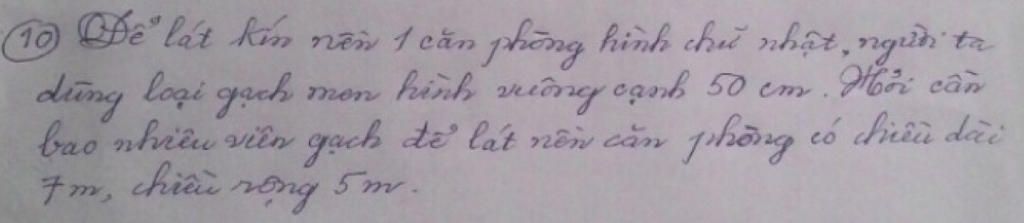 10 Để lát kín nền 1 căn phòng hình chữ nhật, người ta
dùng loại gạch men hình vuông cạnh 50 cm. Hỏi cần
bao nhiêu viên gạch để lát nền căn phòng có chiều dài
7m, chiều rộng 5m.